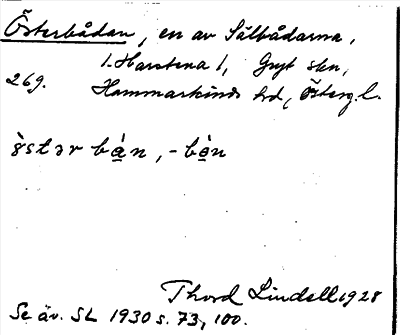 Österbådan, en av Sälbådarna,
1. Harstena 1, Gryt skn,
269. Hammarkinds hd, Österg. l.
östər bȧ̱n, -bȯ̱n
Thord Lindell 1928
Se äv. SL 1930 s. 73, 100.